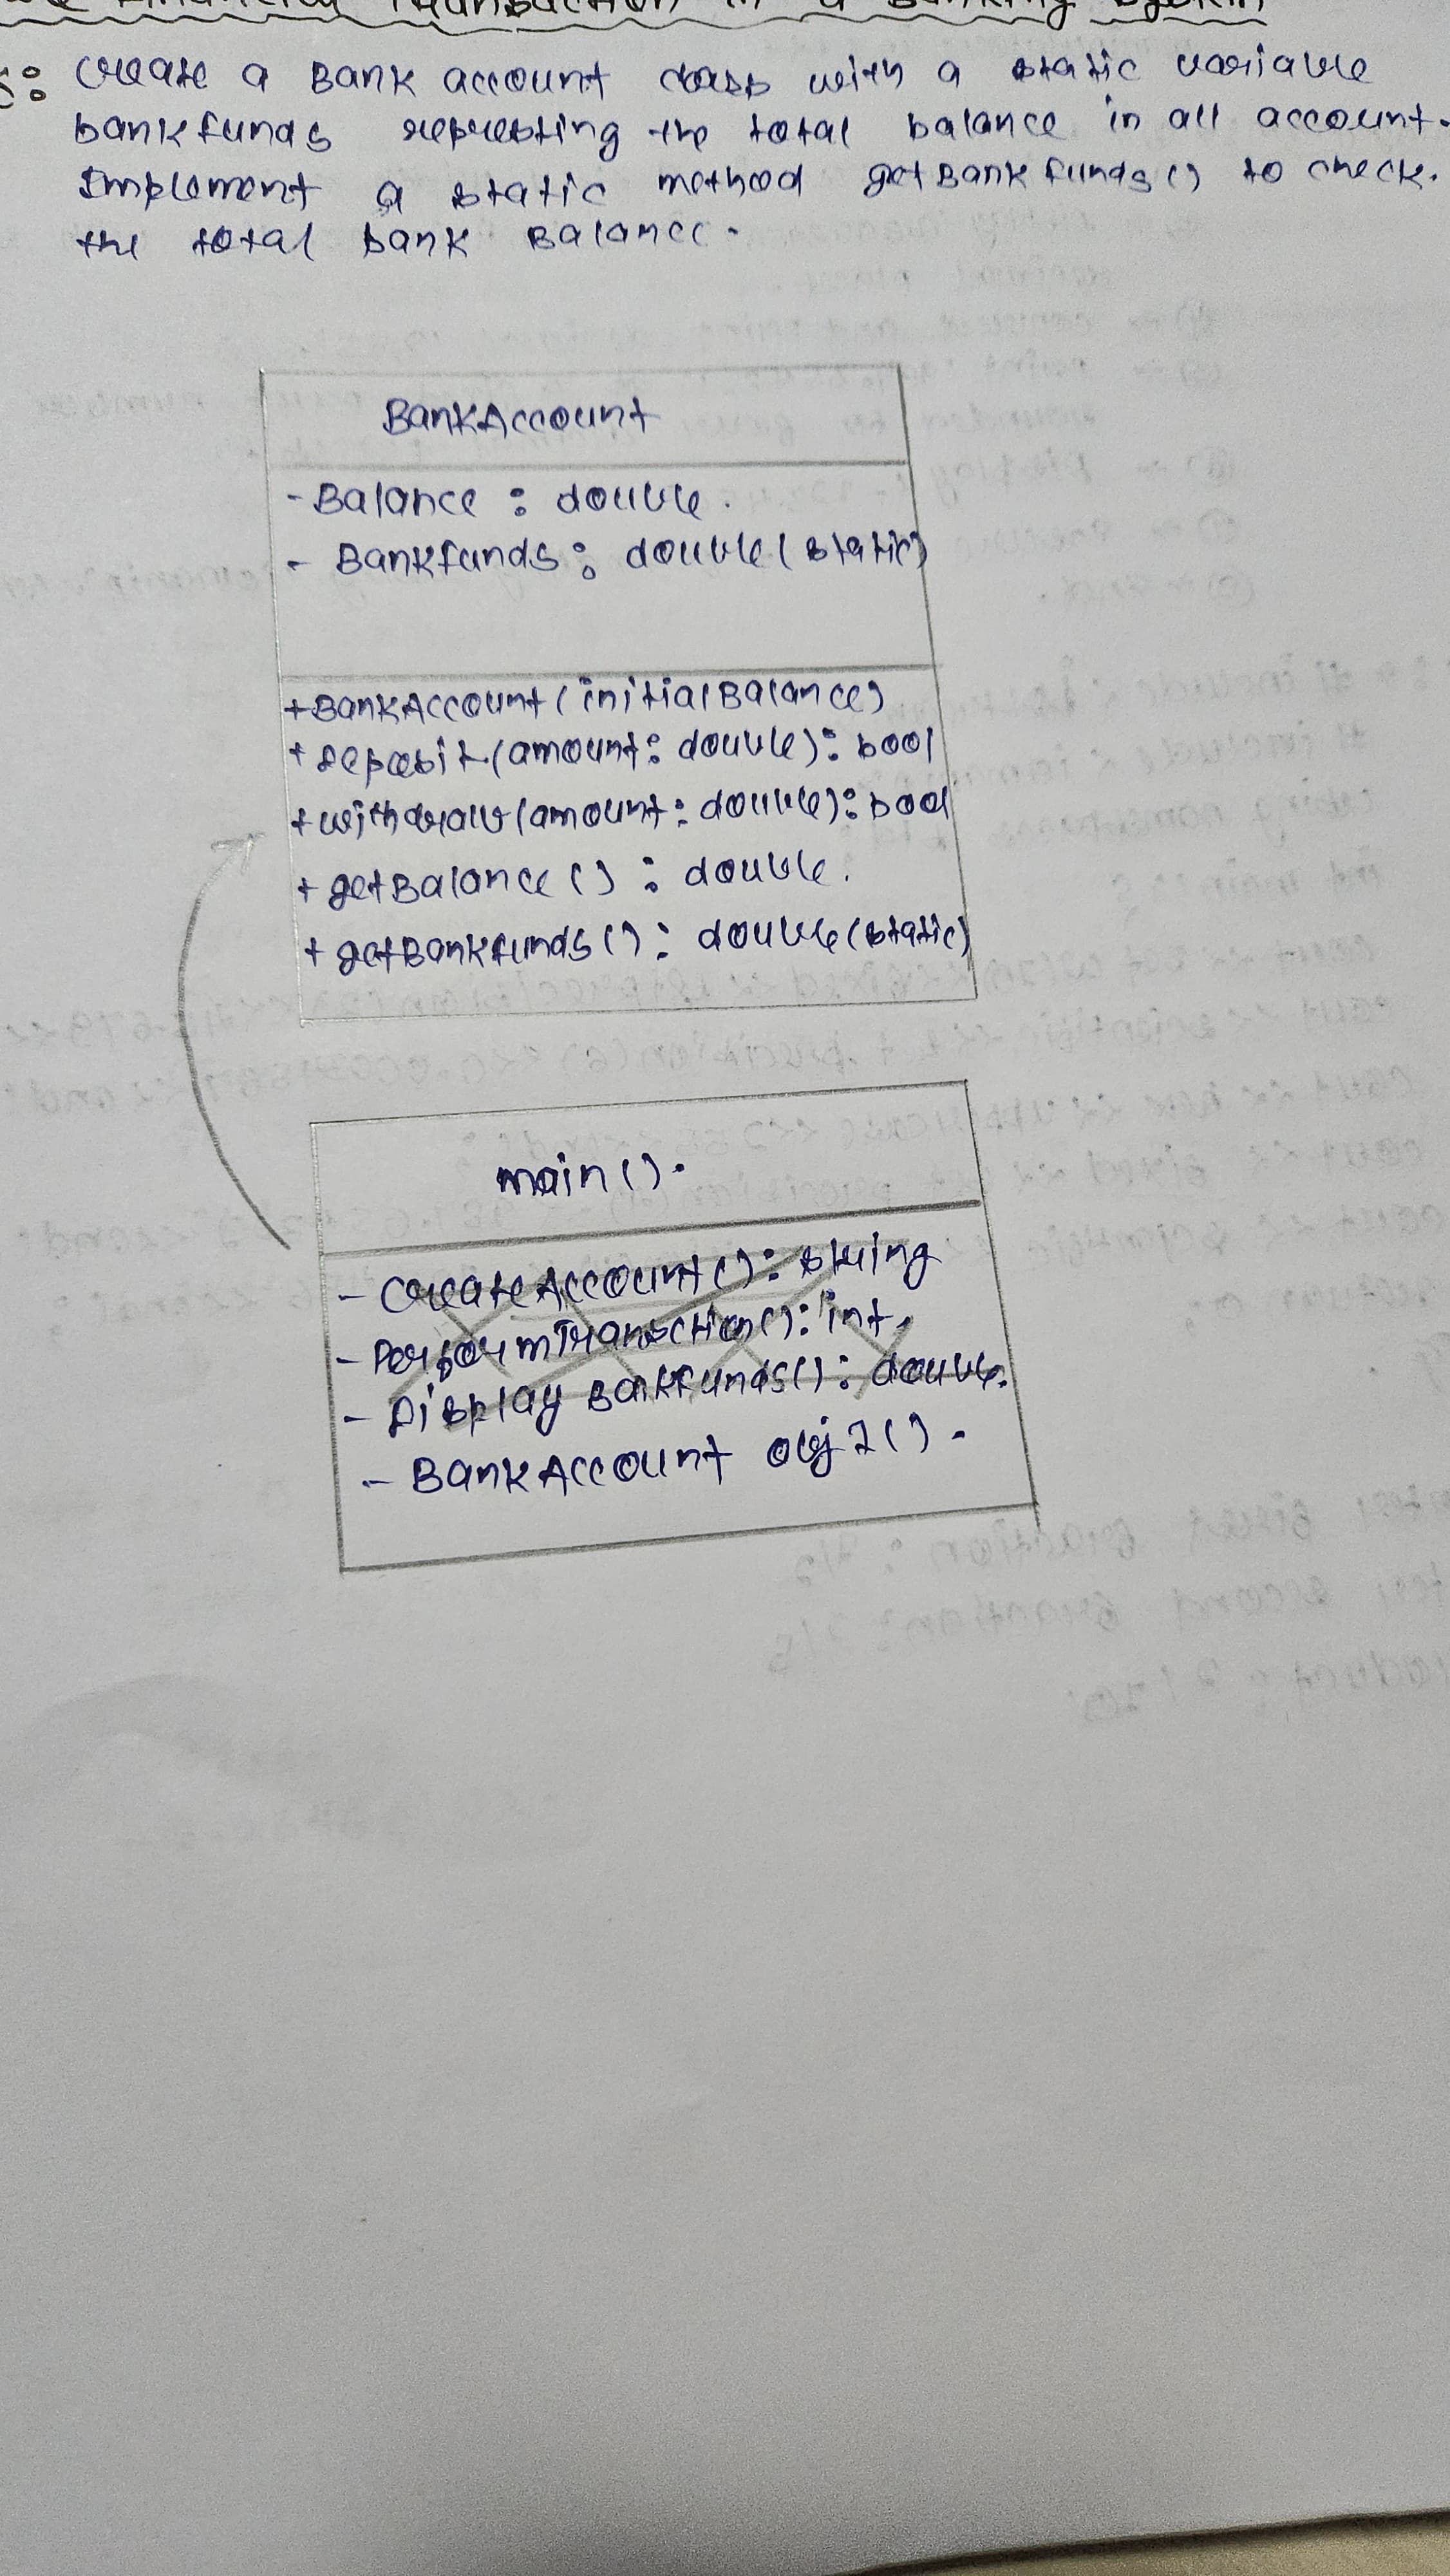 Financial Transaction in a Banking System
Create a Bank account class with a static variable
bankfunds represting the total balance in all account.
Implement a static method getBankfunds() to check.
the total bank Balance.
BankAccount
- Balance : double.
- Bankfunds : double (static)
+ BankAccount (initialBalance)
+ deposit (amount : double) : bool
+ withdraw (amount : double) : bool
+ getBalance () : double.
+ getBankfunds () : double (static)
main().
- CreateAccount() : string
- PerformTransction() : int.
- Display Bankfunds() : double.
- BankAccount obj1().